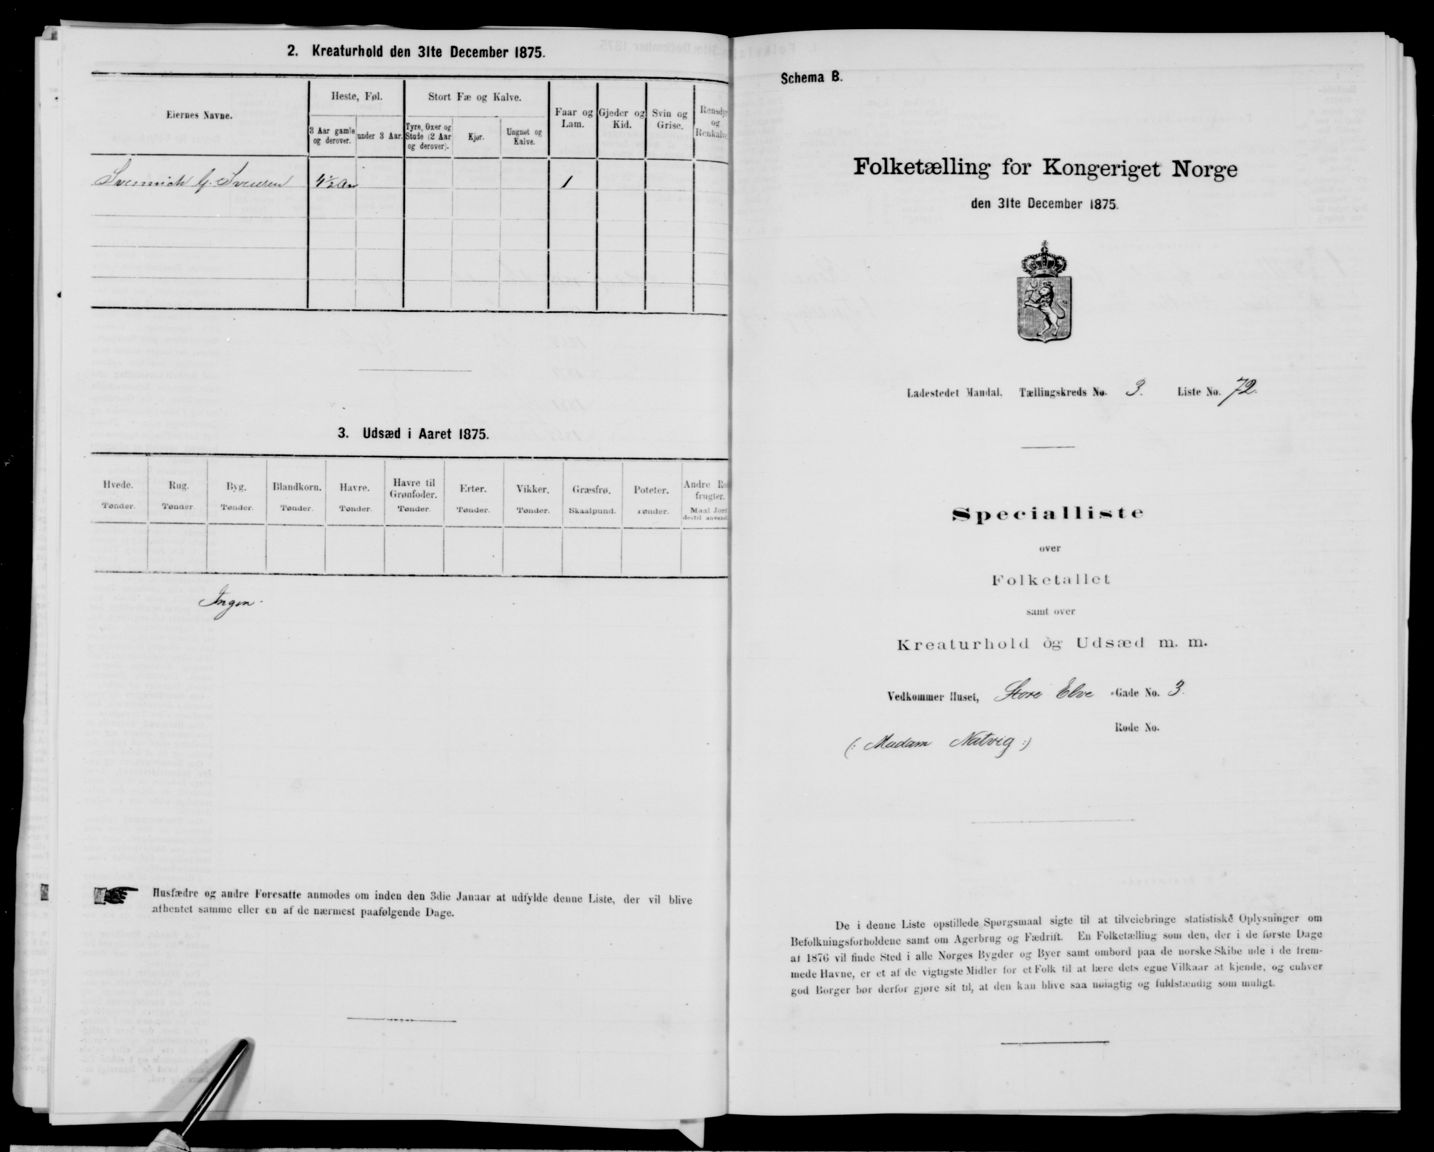 2. Kreaturhold den 31te December 1875.
Eiernes Navne.
Heste, Føl.
Stort Fæ og Kalve.
3 Aar gamle og derover.
under 3 Aar.
Tyre, Oxer og Stude (2 Aar og derover).
Kjør.
Ungnet og Kalve.
Faar og Lam.
Gjeder og Kid.
Svin og Grise.
Rensdyr og Renkalve
G. 1
3. Udsæd i Aaret 1875.
Hvede. Rug. Byg. Blandkorn. Havre. Havre til Grønfoder. Erter. Vikker. Græsfrø. Poteter. Andre Ro frugter.
Tønder. Tønder Tønder. Tønder. Tønder. Tønder. Tønder. Tønder. Skaalpund. Tønder. Maal Jord
Ingen.
Husfædre og andre Foresatte anmodes om inden den 3die Januar at udfylde denne Liste, der vil blive
afhentet samme eller en af de nærmest paafølgende Dage.
Schema B.
Folketælling for Kongeriget Norge
den 31te December 1875.
Ladestedet Mandal. Tællingskreds No. 3. Liste No. 72.
Specialliste
over
Folketallet
samt over
Kreaturhold og Udsæd m. m.
Vedkommer Huset, Store Elve -Gade No. 3.
Rode No.
(: Madam Natvig :)
De i denne Liste opstillede Spørgsmaal sigte til at tilveiebringe statistiske Oplysninger om
Befolkningsforholdene samt om Agerbrug og Fædrift. En Folketælling som den, der i de første Dage
af 1876 vil finde Sted i alle Norges Bygder og Byer samt ombord paa de norske Skibe ude i de frem-
mede Havne, er et af de vigtigste Midler for et Folk til at lære dets egne Vilkaar at kjende, og enhver
god Borger bør derfor gjøre sit til, at den kan blive saa nøiagtig og fuldstændig som muligt.